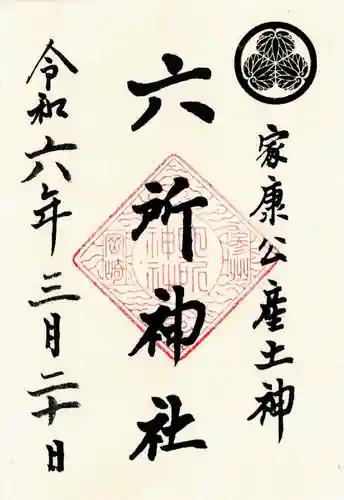 家康公産土神
六所神社
令和六年三月二十日
参州
六所
神社
岡崎